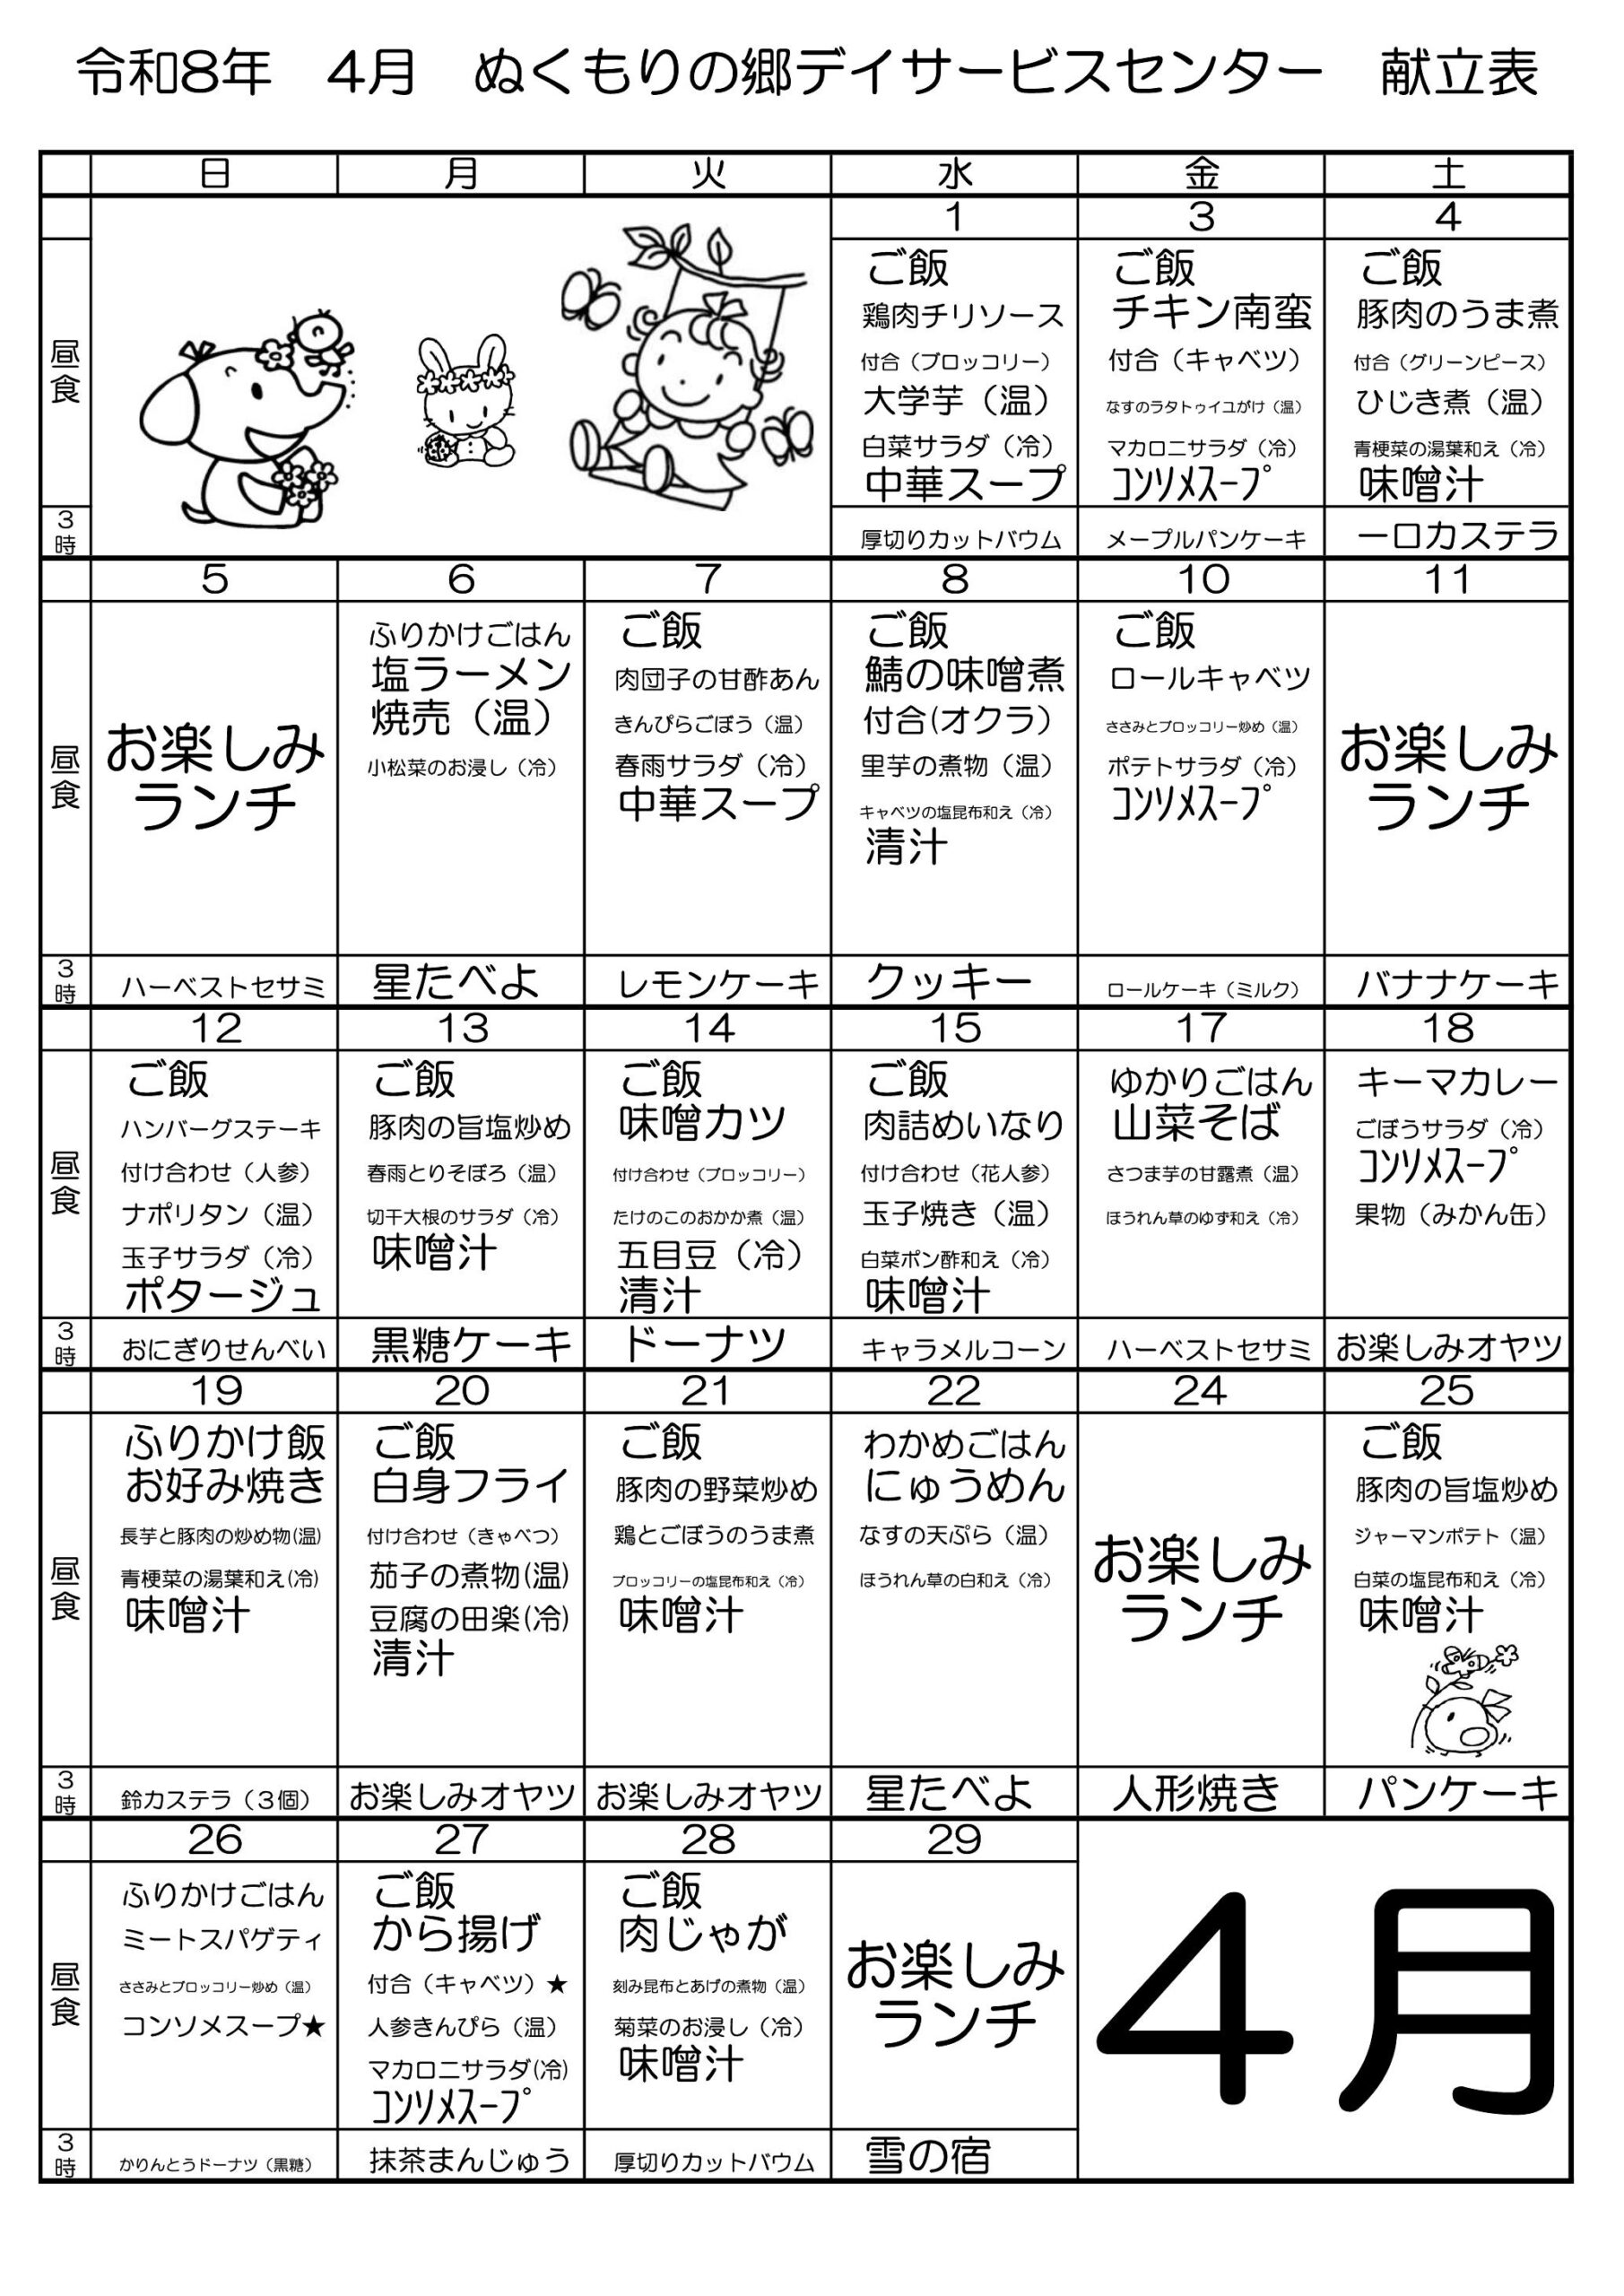 令和8年　4月　ぬくもりの郷デイサービスセンター　献立表
日 月 火 水 金 土
1 3 4
昼食
ご飯 ご飯 ご飯
鶏肉チリソース チキン南蛮 豚肉のうま煮
付合（ブロッコリー） 付合（キャベツ） 付合（グリーンピース）
大学芋（温） なすのラタトゥイユがけ（温） ひじき煮（温）
白菜サラダ（冷） マカロニサラダ（冷） 青梗菜の湯葉和え（冷）
中華スープ ｺﾝｿﾒｽｰﾌﾟ 味噌汁
3時 厚切りカットバウム メープルパンケーキ 一口カステラ
5 6 7 8 10 11
昼食
お楽しみランチ
ふりかけごはん
塩ラーメン
焼売（温）
小松菜のお浸し（冷）
ご飯
肉団子の甘酢あん
きんぴらごぼう（温）
春雨サラダ（冷）
中華スープ
ご飯
鯖の味噌煮
付合(オクラ）
里芋の煮物（温）
キャベツの塩昆布和え（冷）
清汁
ご飯
ロールキャベツ
ささみとブロッコリー炒め（温）
ポテトサラダ（冷）
ｺﾝｿﾒｽｰﾌﾟ
お楽しみランチ
3時 ハーベストセサミ 星たべよ レモンケーキ クッキー ロールケーキ（ミルク） バナナケーキ
12 13 14 15 17 18
昼食
ご飯
ハンバーグステーキ
付け合わせ（人参）
ナポリタン（温）
玉子サラダ（冷）
ポタージュ
ご飯
豚肉の旨塩炒め
春雨とりそぼろ（温）
切干大根のサラダ（冷）
味噌汁
ご飯
味噌カツ
付け合わせ（ブロッコリー）
たけのこのおかか煮（温）
五目豆（冷）
清汁
ご飯
肉詰めいなり
付け合わせ（花人参）
玉子焼き（温）
白菜ポン酢和え（冷）
味噌汁
ゆかりごはん
山菜そば
さつま芋の甘露煮（温）
ほうれん草のゆず和え（冷）
キーマカレー
ごぼうサラダ（冷）
ｺﾝｿﾒｽｰﾌﾟ
果物（みかん缶）
3時 おにぎりせんべい 黒糖ケーキ ドーナツ キャラメルコーン ハーベストセサミ お楽しみオヤツ
19 20 21 22 24 25
昼食
ふりかけ飯
お好み焼き
長芋と豚肉の炒め物(温)
青梗菜の湯葉和え(冷)
味噌汁
ご飯
白身フライ
付け合わせ（きゃべつ）
茄子の煮物(温)
豆腐の田楽(冷)
清汁
ご飯
豚肉の野菜炒め
鶏とごぼうのうま煮
ブロッコリーの塩昆布和え（冷）
味噌汁
わかめごはん
にゅうめん
なすの天ぷら（温）
ほうれん草の白和え（冷）
お楽しみランチ
ご飯
豚肉の旨塩炒め
ジャーマンポテト（温）
白菜の塩昆布和え（冷）
味噌汁
3時 鈴カステラ（３個） お楽しみオヤツ お楽しみオヤツ 星たべよ 人形焼き パンケーキ
26 27 28 29
昼食
ふりかけごはん
ミートスパゲティ
ささみとブロッコリー炒め（温）
コンソメスープ★
ご飯
から揚げ
付合（キャベツ）★
人参きんぴら（温）
マカロニサラダ(冷)
ｺﾝｿﾒｽｰﾌﾟ
ご飯
肉じゃが
刻み昆布とあげの煮物（温）
菊菜のお浸し（冷）
味噌汁
お楽しみランチ
4月
3時 かりんとうドーナツ（黒糖） 抹茶まんじゅう 厚切りカットバウム 雪の宿